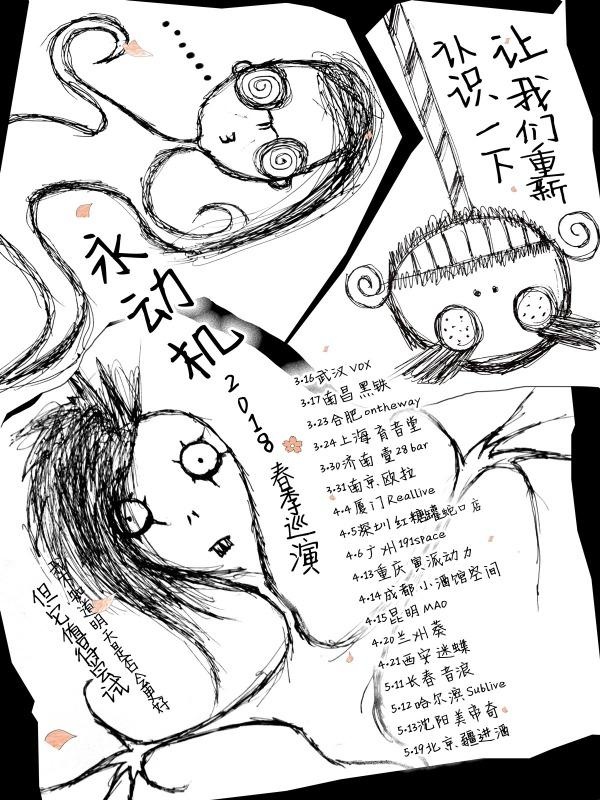 让我们重新
认识一下
永动机
2018
春季巡演
3.16武汉VOX
3.17南昌黑铁
3.23合肥ontheway
3.24上海育音堂
3.30济南壹28bar
3.31南京欧拉
4.4厦门Reallive
4.5深圳红糖罐蛇口店
4.6广州191space
4.13重庆寅派动力
4.14成都小酒馆空间
4.15昆明MAO
4.20兰州葵
4.21西安迷蝶
5.11长春音浪
5.12哈尔滨Sublive
5.13沈阳美帝奇
5.19北京疆进酒
我不知道明天是否会更好
但它值得尝试